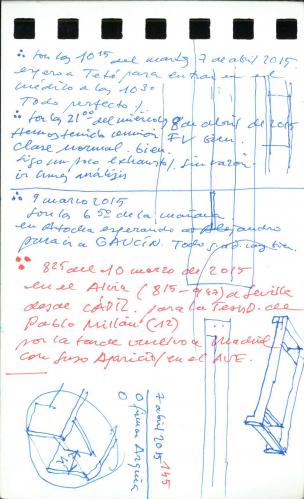 ∴ son las 10 15 del martes 7 de abril 2015.
espero a Teté para entrar en el
médico a las 10 30
Todo perfecto!
∴ son las 21 00 del miércoles 8 de abril de 2015
Hemos tenido reunión FV bien.
clase normal. bien.
sigo un poco exhausto, sin razón.
∴ 9 marzo 2015
son las 6 50 de la mañana
en Atocha esperando a Alejandro
para ir a GAUCÍN. Todo
∴ 8 25 del 10 marzo de 2015
en el Alvia (8 15 - 9 47) a Sevilla
desde CÁDIZ. para la Tesis D. de
Pablo Millán (12)
por la tarde vuelvo a Madrid
con Suso Aparicio en el AVE.
7 abril 2015 145